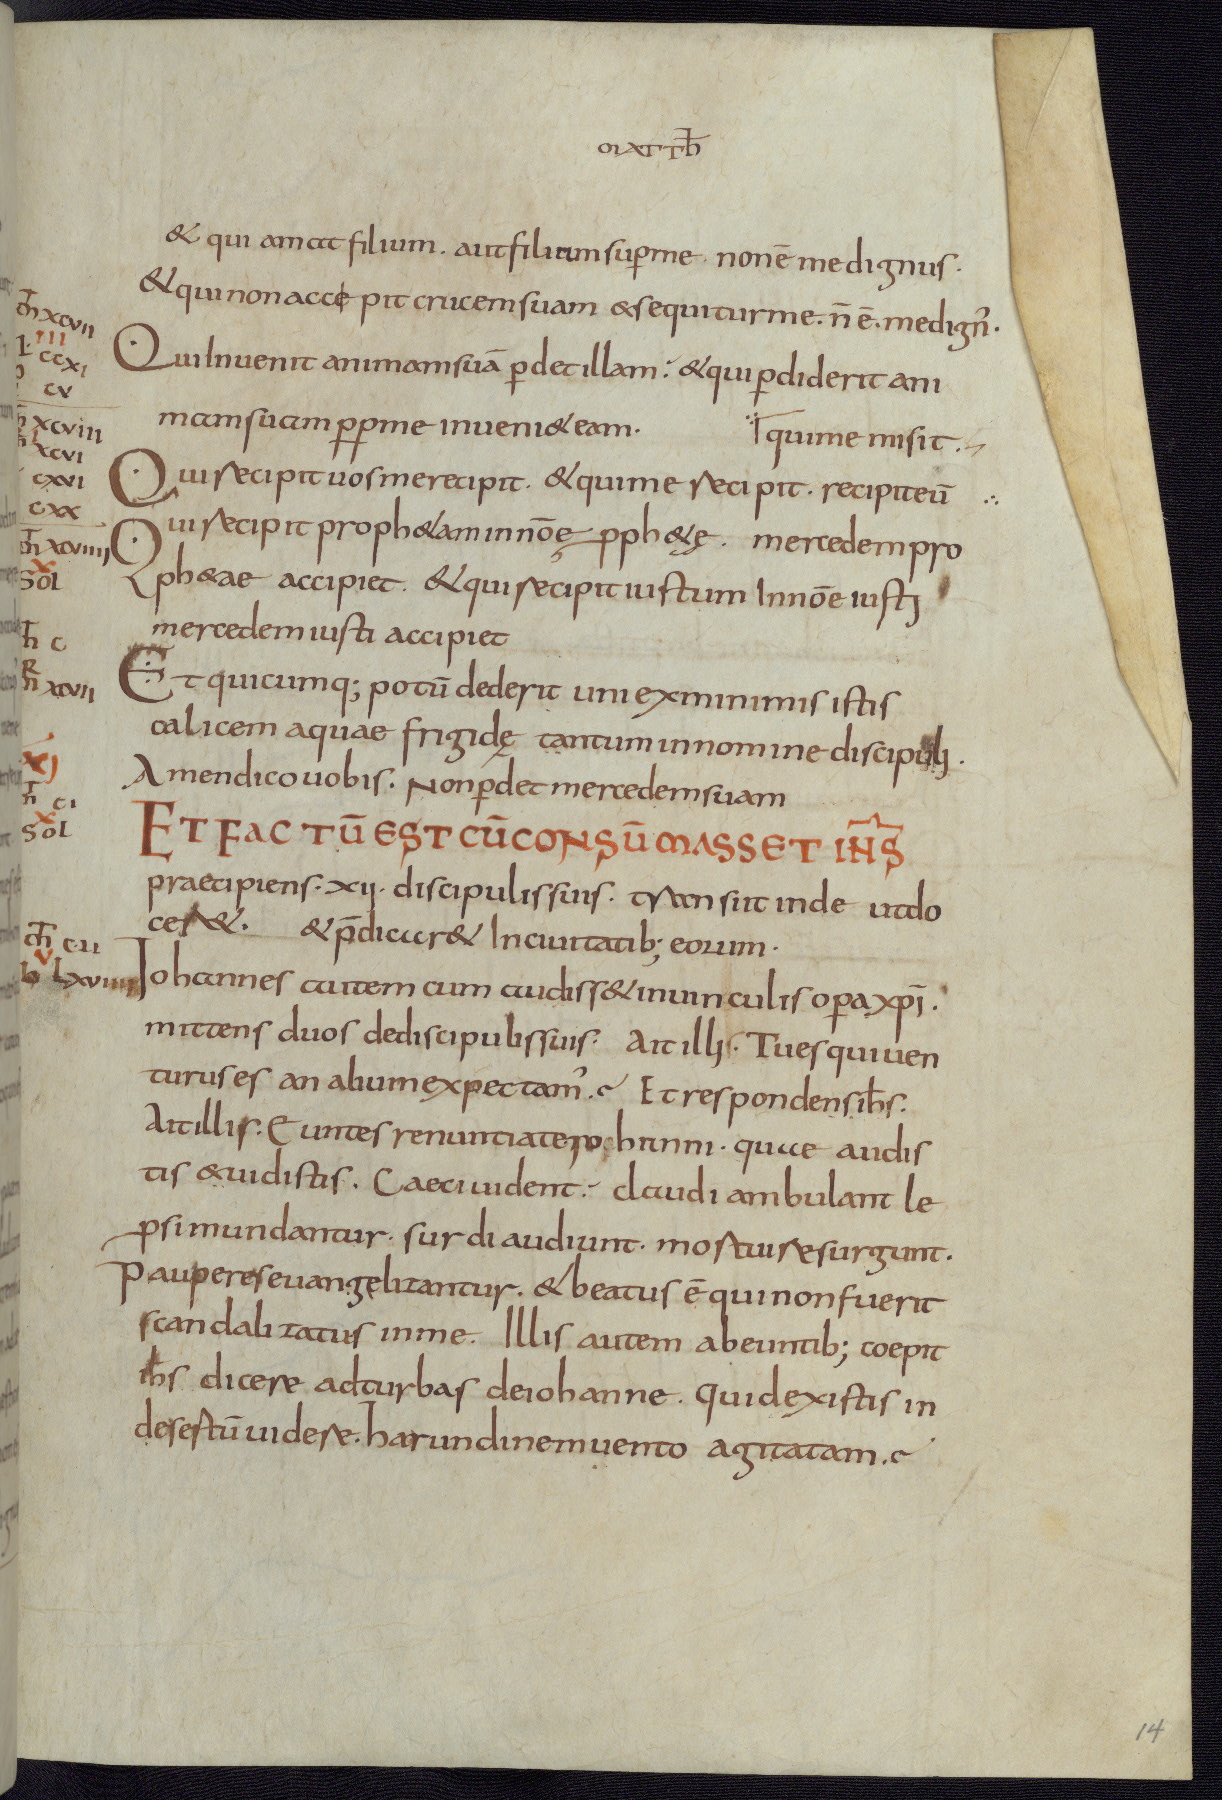 MATTħ
& qui amat filium. aut filiam sup̄ me. non ē me dignus.
& qui non accepit crucem suam & sequitur me. n̄ ē. me dign'.
Qui Inuenit animam suā p̄det illam: & qui p̄diderit ani
mam suam pp̄ me inueni& eam.
qui me misit.
Qui recipit uos me recipit. & qui me recipit. recipit eū
Qui recipit proph&am in nōe pph&ę. mercedem pro
ph&ae accipiet. & qui recipit iustum In nōe iusti
mercedem iusti accipiet
Et quicumq; potū dederit uni ex minimis istis
calicem aquae frigidę tantum in nomine discipuli.
Amen dico uobis. Non p̄det mercedem suam
ET FACTŪ EST CŪ CONSŪMASSET IH̄S
praecipiens. xii. discipulis suis. transiit inde ut do
cer&. & p̄dicar& In ciuitatib; eorum.
Iohannes autem cum audiss& in uinculis opera xp̄i.
mittens duos de discipulis suis. Ait illi. Tu es qui uen
turus es an alium expectam'. Et respondens ih̄s.
Ait illis. Euntes renuntiate iohanni. quae audis
tis & uidistis. Caeci uident. claudi ambulant le
psi mundantur. surdi audiunt. mortui resurgunt.
Pauperes euangelizantur. & beatus ē qui non fuerit
scandalizatus in me. Illis autem abeuntib; coepit
ih̄s dicere ad turbas de iohanne. Quid existis in
desertū uidere. harundinem uento agitatam.
xcvii
III
ccxi
cv
xcviii
xcvi
cxvi
cxx
xcviiii
x
Sol
c
xcvii
XI
ci
x
Sol
cii
v
lxviiii
14